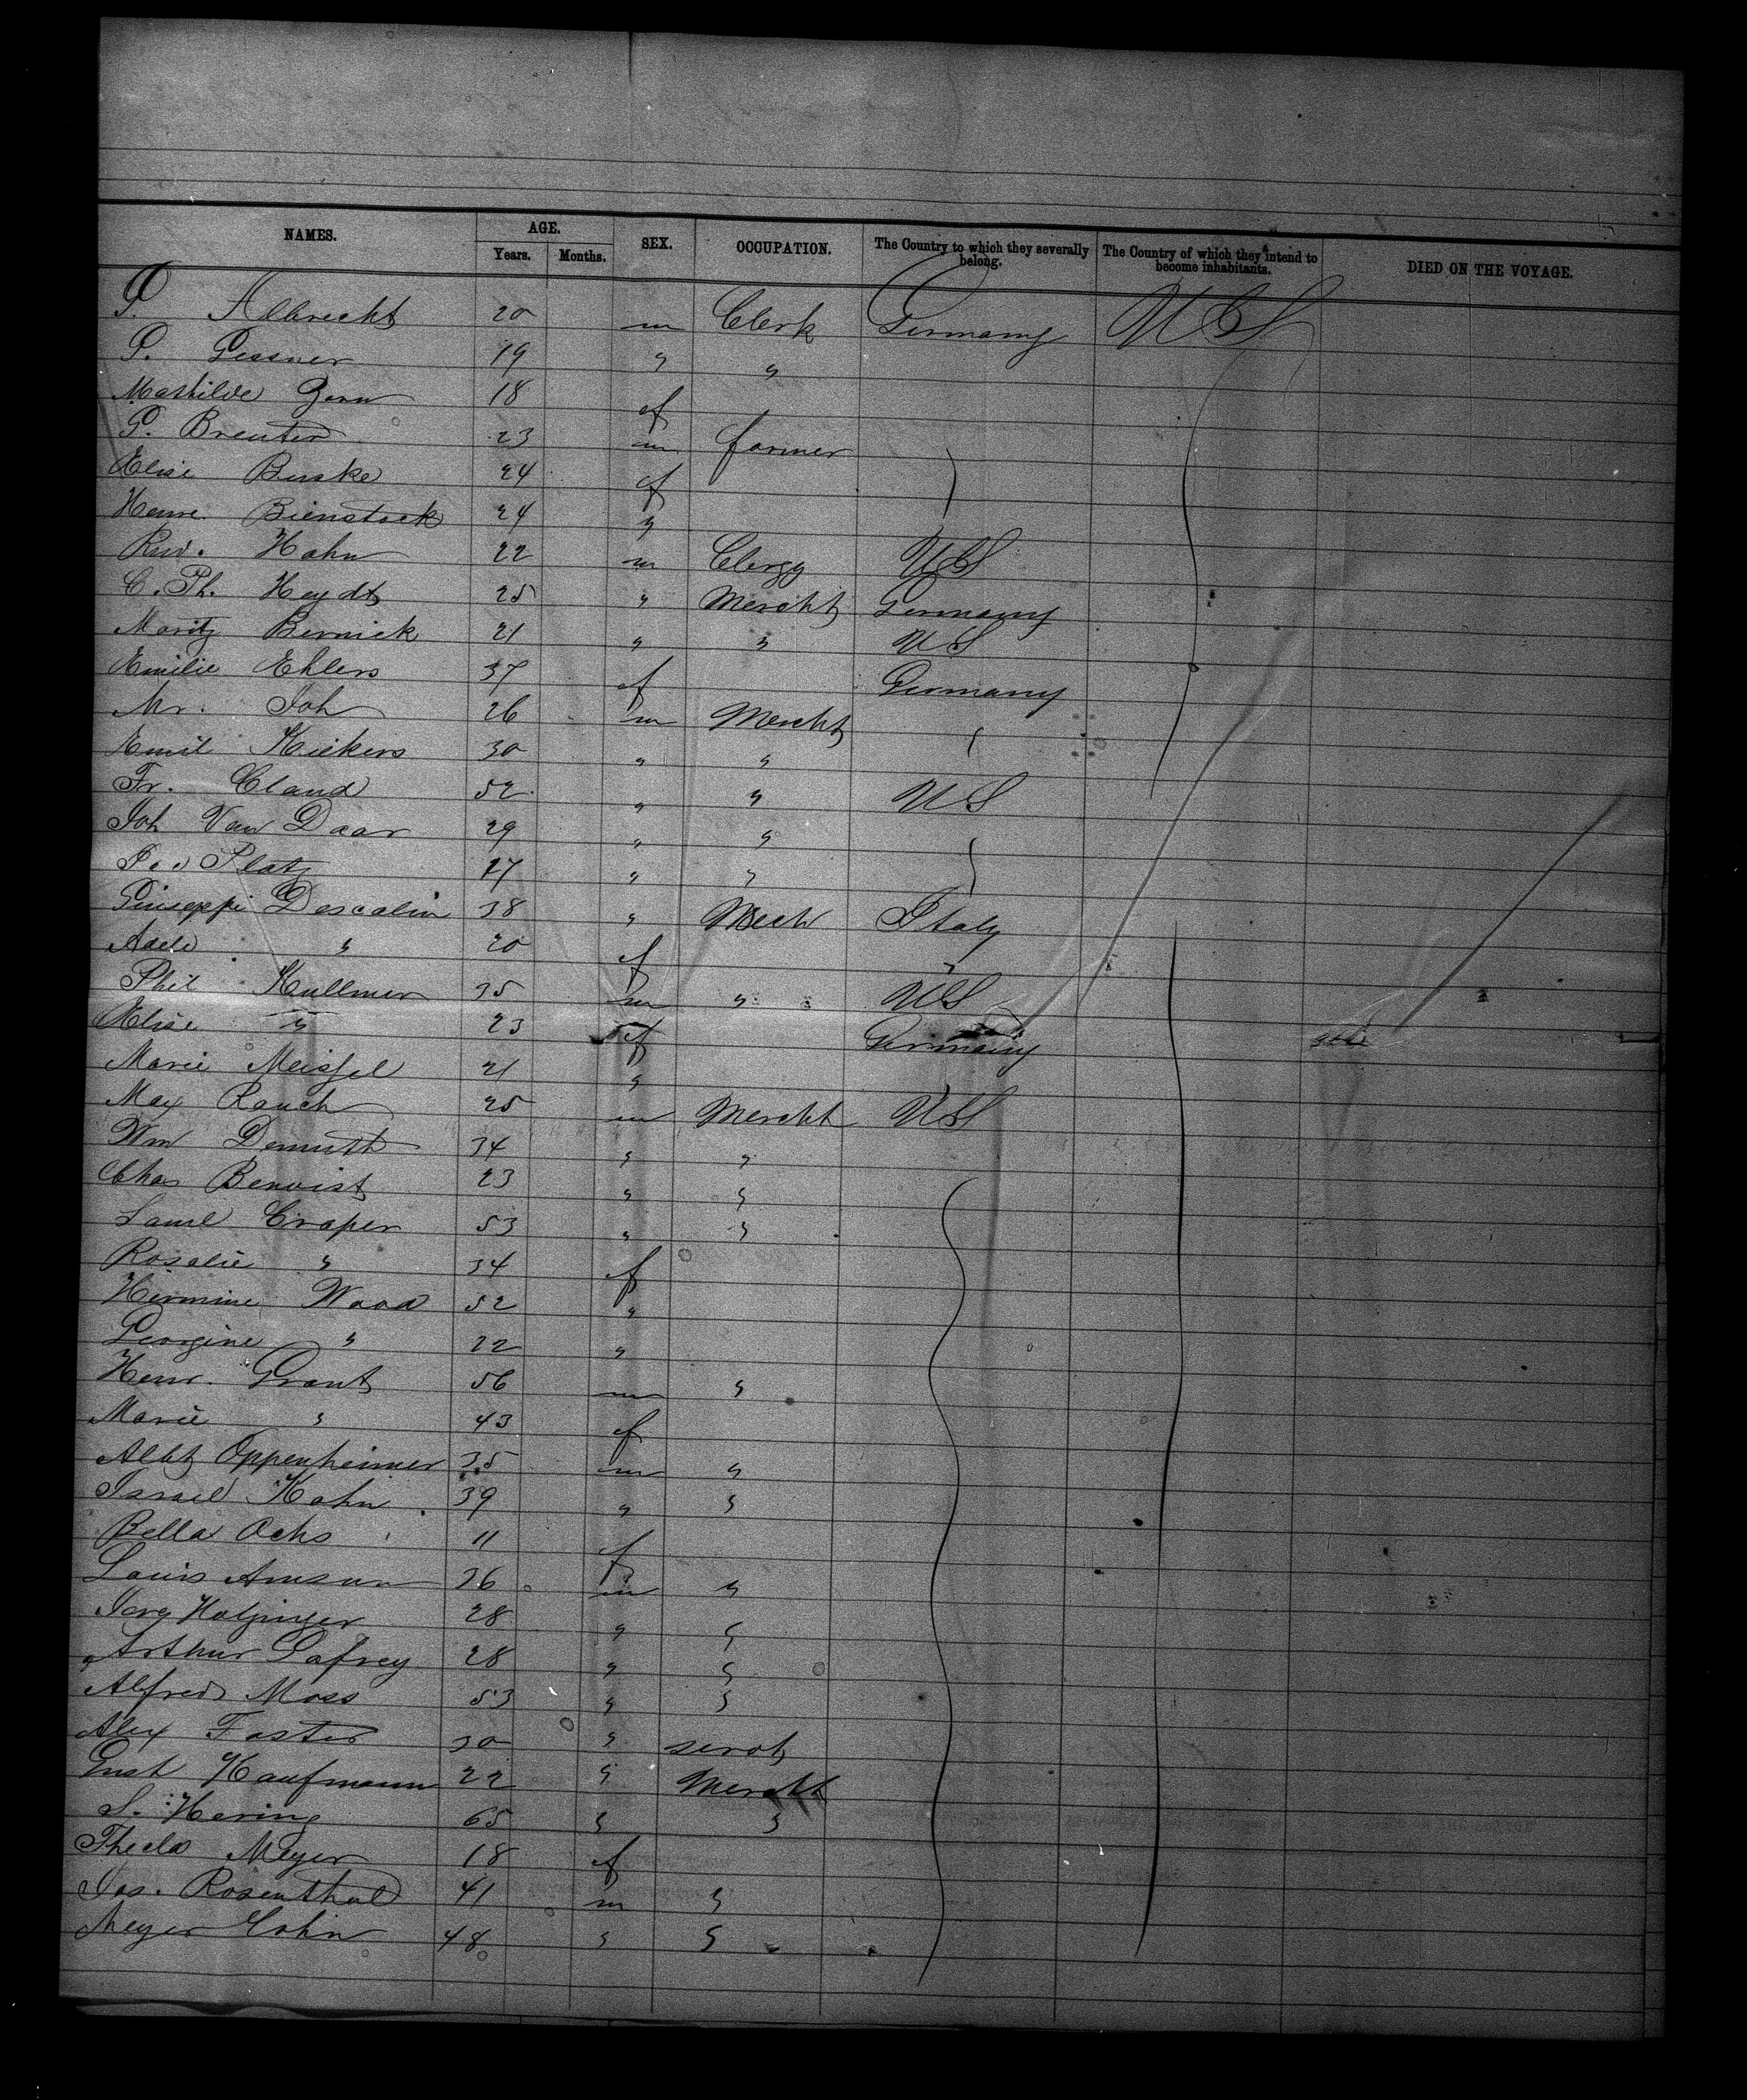 NAMES. AGE. SEX. OCCUPATION. The Country to which they severally belong. The Country of which they intend to become inhabitants. DIED ON THE VOYAGE.
Years. Months.
Albrecht 20 m Clerk Germany US
19 " "
Mathilde 18 f
23 m farmer
Elise Buske 24 f
Bienstock 24 "
Rev. Hahn 22 m Clergy US
C. Ph. Heydt 25 " Mercht Germany
Moritz Bernick 21 " " US
Emilie Ehlers 37 f Germany
Mr. Joh 26 m Mercht
Emil Kiekers 30 " "
Fr. Cland 52 " " US
Joh Van Daar 29 " "
Platz " "
Giuseppi Descalin 38 " Mech Italy
Adele " 20 f "
Phil Kullmer 35 m " US
Elise " 23 f Germany
Marie Meissel 21 "
Max Rauch 25 m Mercht US
Wm Demuth 34 " "
Chas Benoist 23 " "
Saml Craper 53 " "
Rosalie " 34 f
Hermine Wood 52 "
Georgine " 22 "
Henr. Grant 56 m "
Marie " 43 f
Albt Oppenheimer 35 m "
Israel Kahn 39 " "
Bella Ochs 11 f
Louis 36 m "
28 " "
Arthur Lafrey 28 " "
Alfred Moss 53 " "
Alex Foster 30 " servt
Gust Kaufmann 22 " Mercht
S. Hering 65 " "
Thecla Meyer 18 f
Jos. Rosenthal 41 m "
Meyer Cohn 48 " "